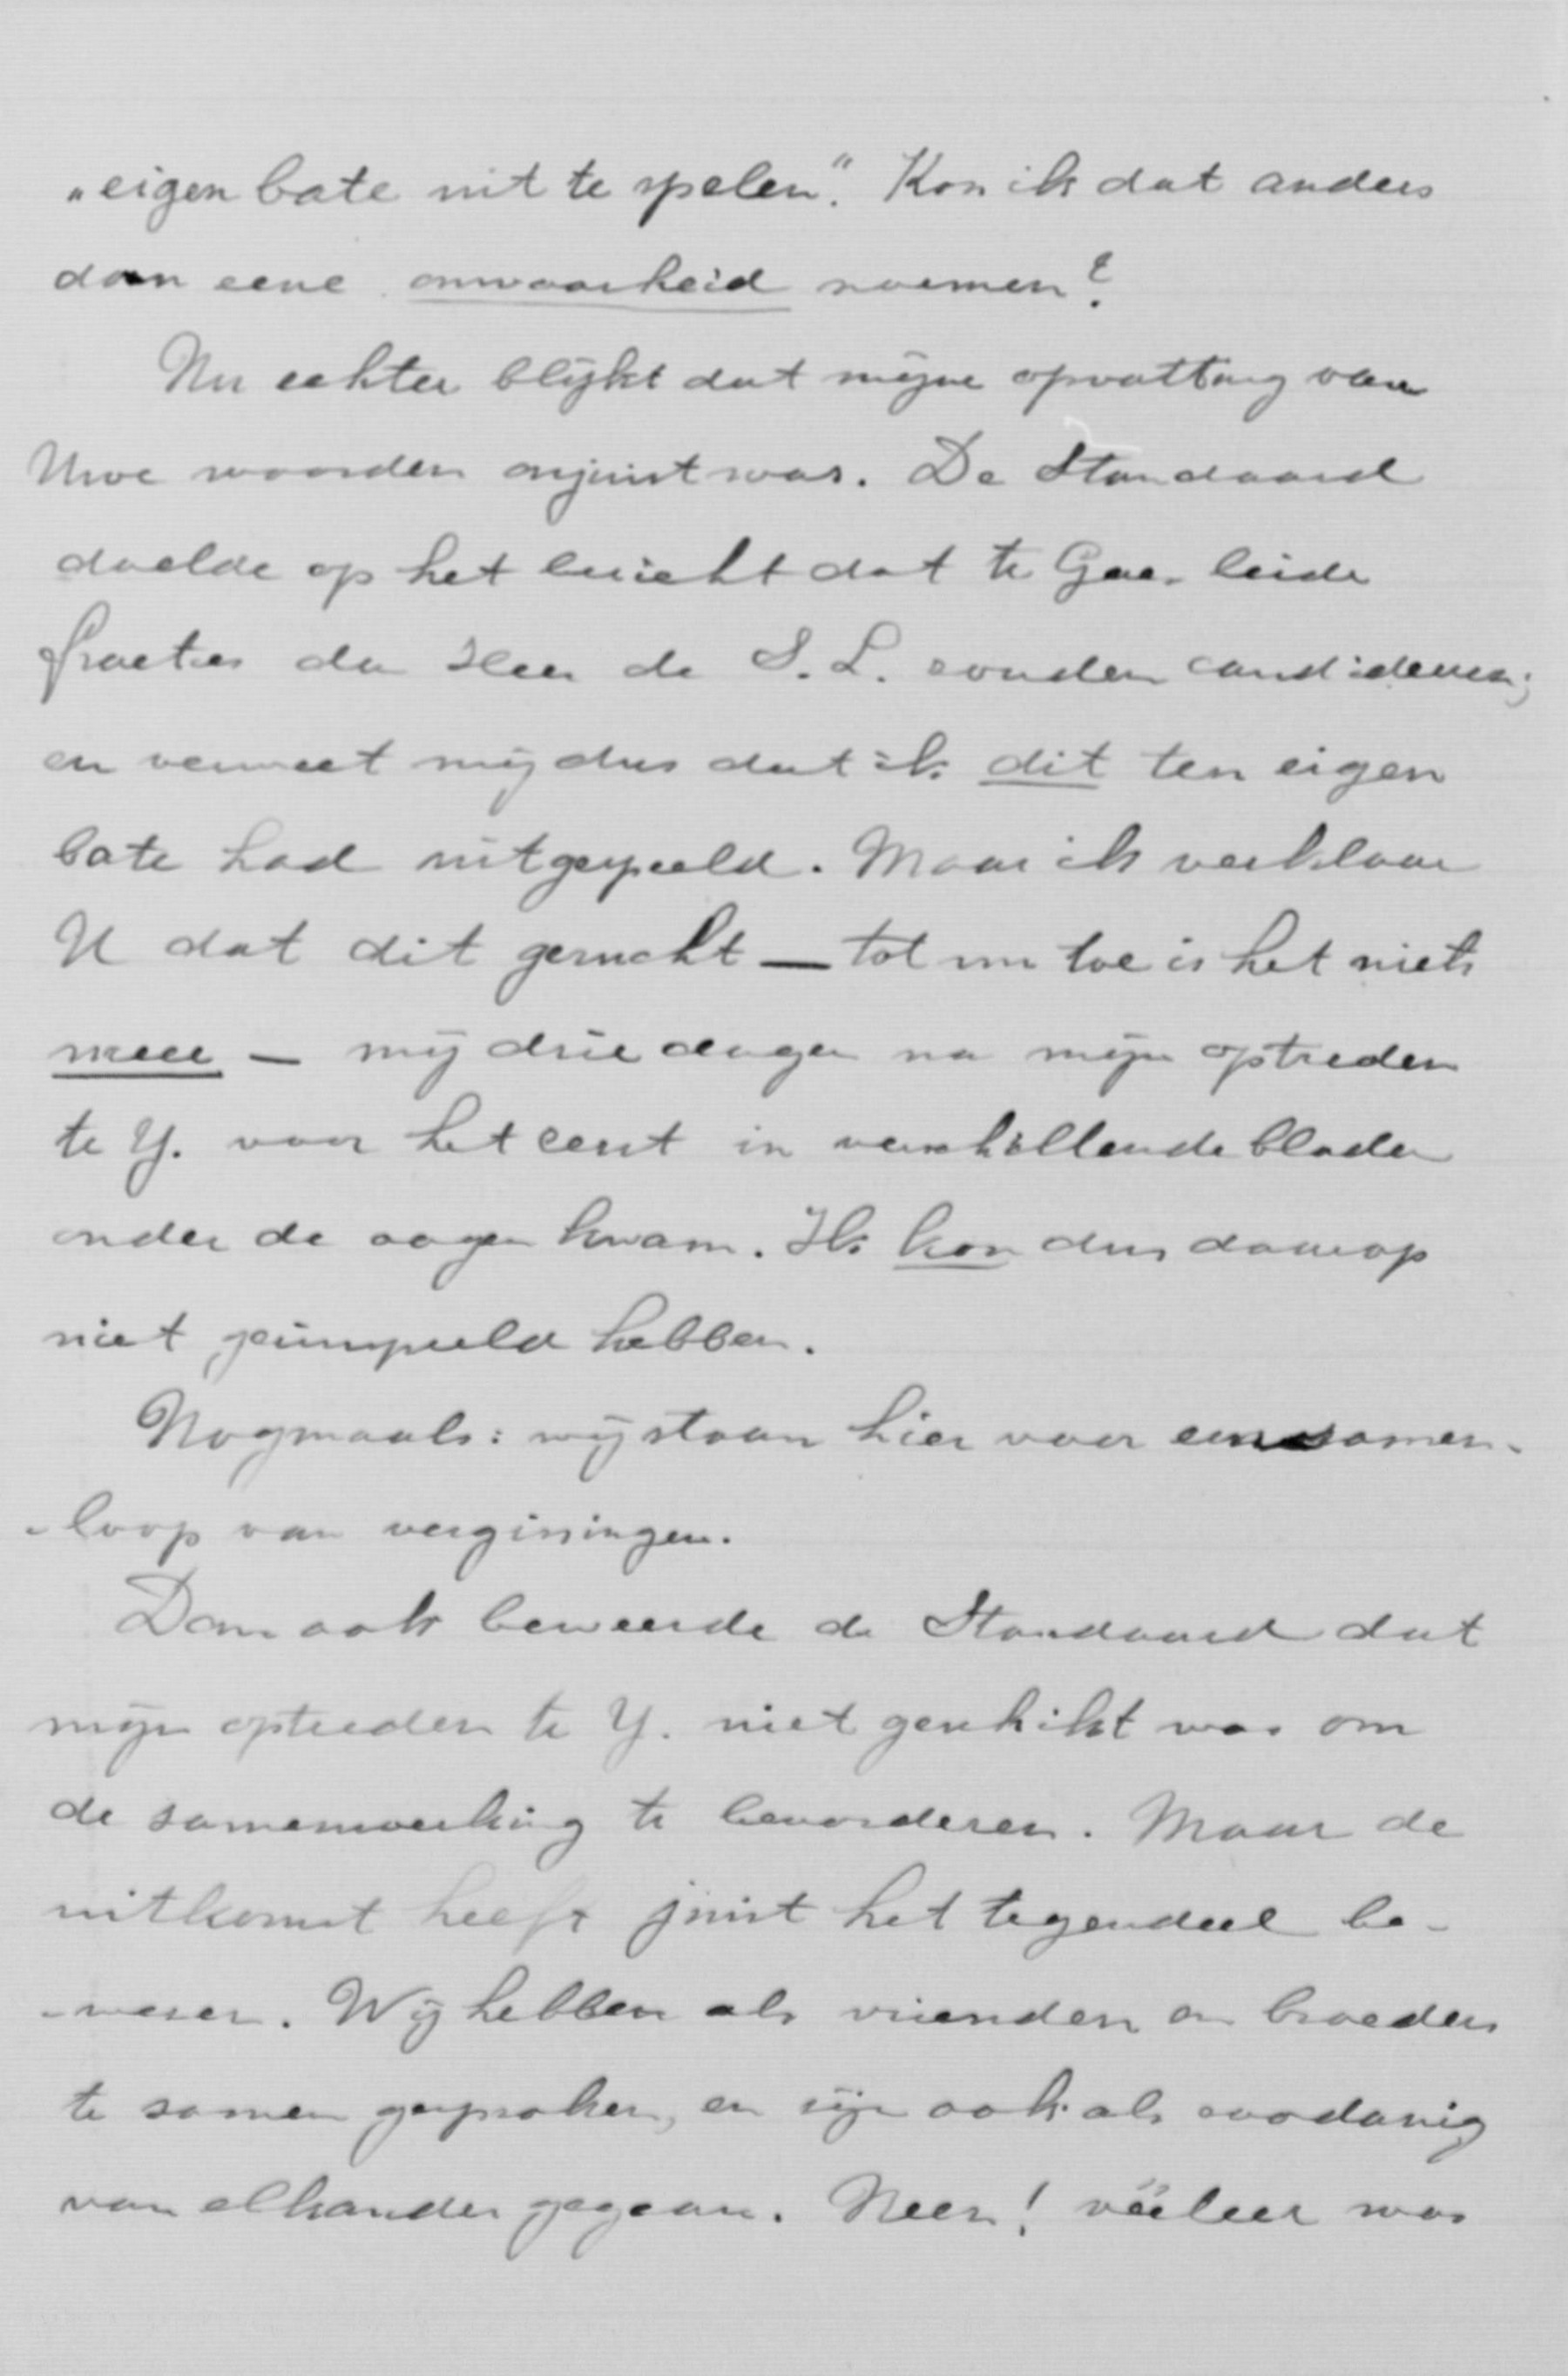 „eigen bate uit te spelen”. Kon ik dat anders
dan eene onwaarheid noemen?
Nu echter blijkt dat mijne opvatting van
Uwe woorden onjuist was. De Standaard
doelde op het bericht dat te Goes beide
fracties den Heer de S. L. zouden candideeren;
en verweet mij dus dat ik dit ten eigen
bate had uitgespeeld. Maar ik verklaar
U dat dit gerucht — tot nu toe is het niets
meer — mij drie dagen na mijn optreden
te Y. voor het eerst in verschillende bladen
onder de oogen kwam. Ik kon dus daarop
niet gezinspeeld hebben.
Nogmaals: wij staan hier voor een samen-
-loop van vergissingen.
Dan ook beweerde de Standaard dat
mijn optreden te Y. niet geschikt was om
de samenwerking te bevorderen. Maar de
uitkomst heeft juist het tegendeel be-
-wezen. Wij hebben als vrienden en broeders
te samen gesproken, en zijn ook als zoodanig
van elkander gegaan. Neen! véeleer was